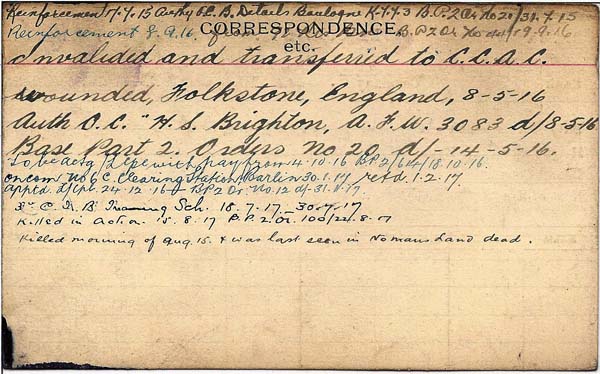 Reinforcement 17.7.15 Auth O.C. B. Details Boulogne K.443 B.P.2 Or. No 20/31.7.15
CORRESPONDENCE,
etc.
Reinforcement 8.9.16 B.P2 Or. 19.9.16
Invalided and transferred to C.C.A.C.
wounded, Folkstone, England, 8-5-16
Auth O.C. "H.S. Brighton, A.F.W. 3083 d/8-5-16
Base Part 2. Orders No 20. d/-14-5-16.
To be actg L/Cpl with pay from 4.10.16 BP2/ 18.10.16.
on com No 6 C. Clearing Station Barlin 30.1.17 retd. 1.2.17.
Apptd. L/Cpl. 24-12-16 BP2 Or No. 12 d/31.1.17.
Training Sch. 18.7.17 30.7.17
Killed in Action 15.8.17 P.P. 2 Or. 100/22.8.17
Killed morning of Aug. 15. & was last seen in No mans Land dead.